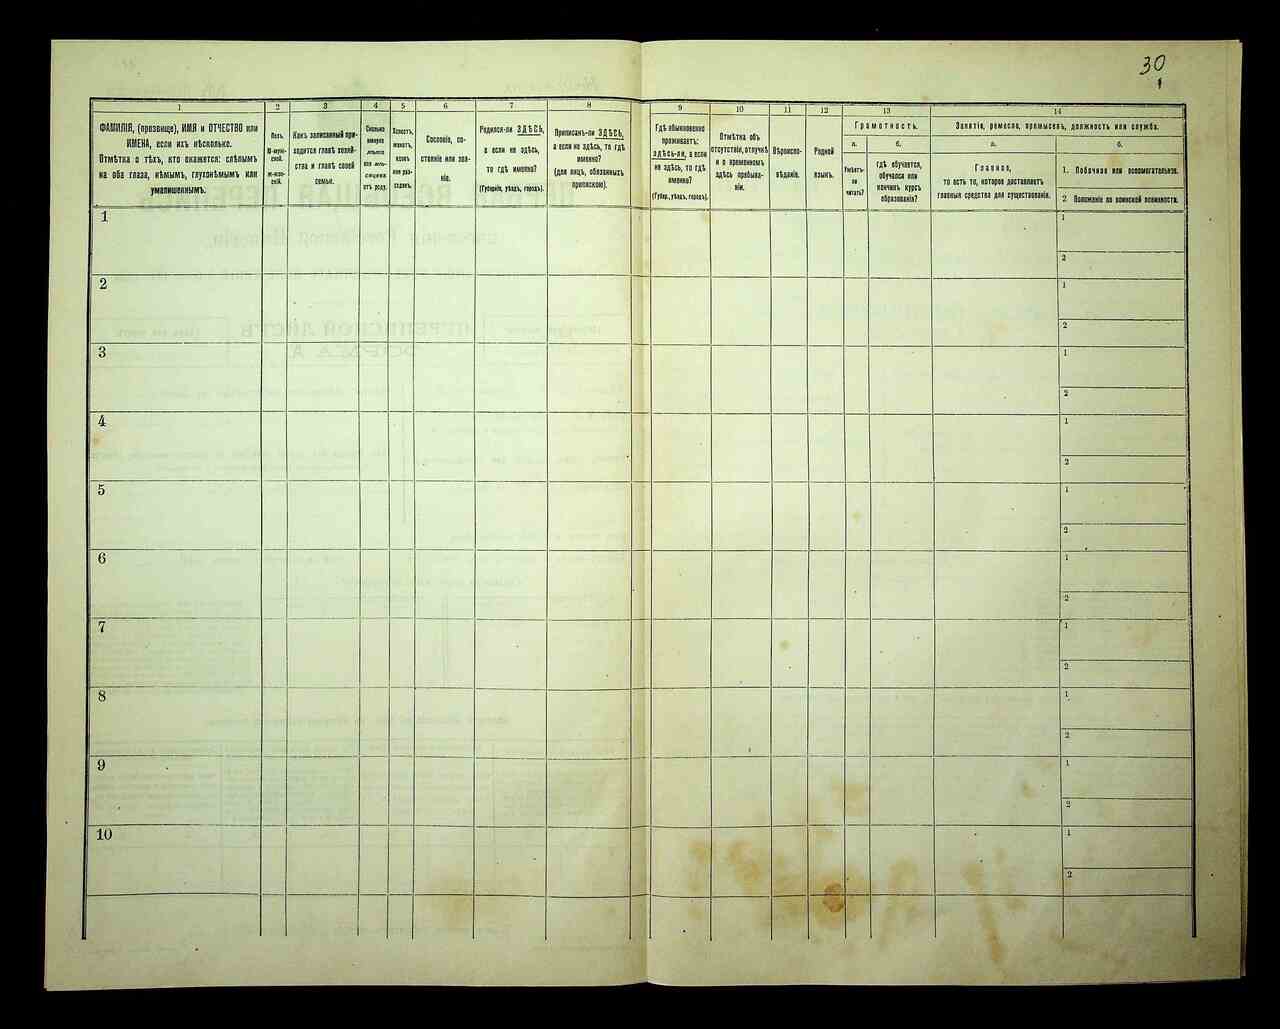 30
1
1
ФАМИЛІЯ, (прозвище), ИМЯ и ОТЧЕСТВО или
ИМЕНА, если ихъ нѣсколько.
Отмѣтка о тѣхъ, кто окажется: слѣпымъ
на оба глаза, нѣмымъ, глухонѣмымъ или
умалишеннымъ.
2
Полъ.
М-муж-
ской.
Ж-жен-
скій.
3
Какъ записанный при-
ходится главѣ хозяй-
ства и главѣ своей
семьи.
4
Сколько
минуло
лѣтъ
или мѣ-
сяцевъ
отъ роду.
5
Холостъ,
женатъ,
вдовъ
или раз-
веденъ.
6
Сословіе, со-
стояніе или зва-
ніе.
7
Родился-ли ЗДѢСЬ,
а если не здѣсь,
то гдѣ именно?
(Губернія, уѣздъ, городъ).
8
Приписанъ-ли ЗДѢСЬ,
а если не здѣсь, то гдѣ
именно?
(для лицъ, обязанныхъ
припискою).
9
Гдѣ обыкновенно
проживаетъ:
ЗДѢСЬ-ли, а если
не здѣсь, то гдѣ
именно?
(Губер., уѣздъ, городъ).
10
Отмѣтка объ
отсутствіи, отлучкѣ
и о временномъ
здѣсь пребыва-
ніи.
11
Вѣроиспо-
вѣданіе.
12
Родной
языкъ.
13
Грамотность.
а.
Умѣетъ-
ли
читать?
б.
гдѣ обучается,
обучался или
кончилъ курсъ
образованія?
14
Занятіе, ремесло, промыселъ, должность или служба.
а.
Главное,
то есть то, которое доставляетъ
главныя средства для существованія.
б.
1. Побочное или вспомогательное.
2 Положеніе по воинской повинности.
1
1
2
2
1
2
3
1
2
4
1
2
5
1
2
6
1
2
7
1
2
8
1
2
9
1
2
10
1
2